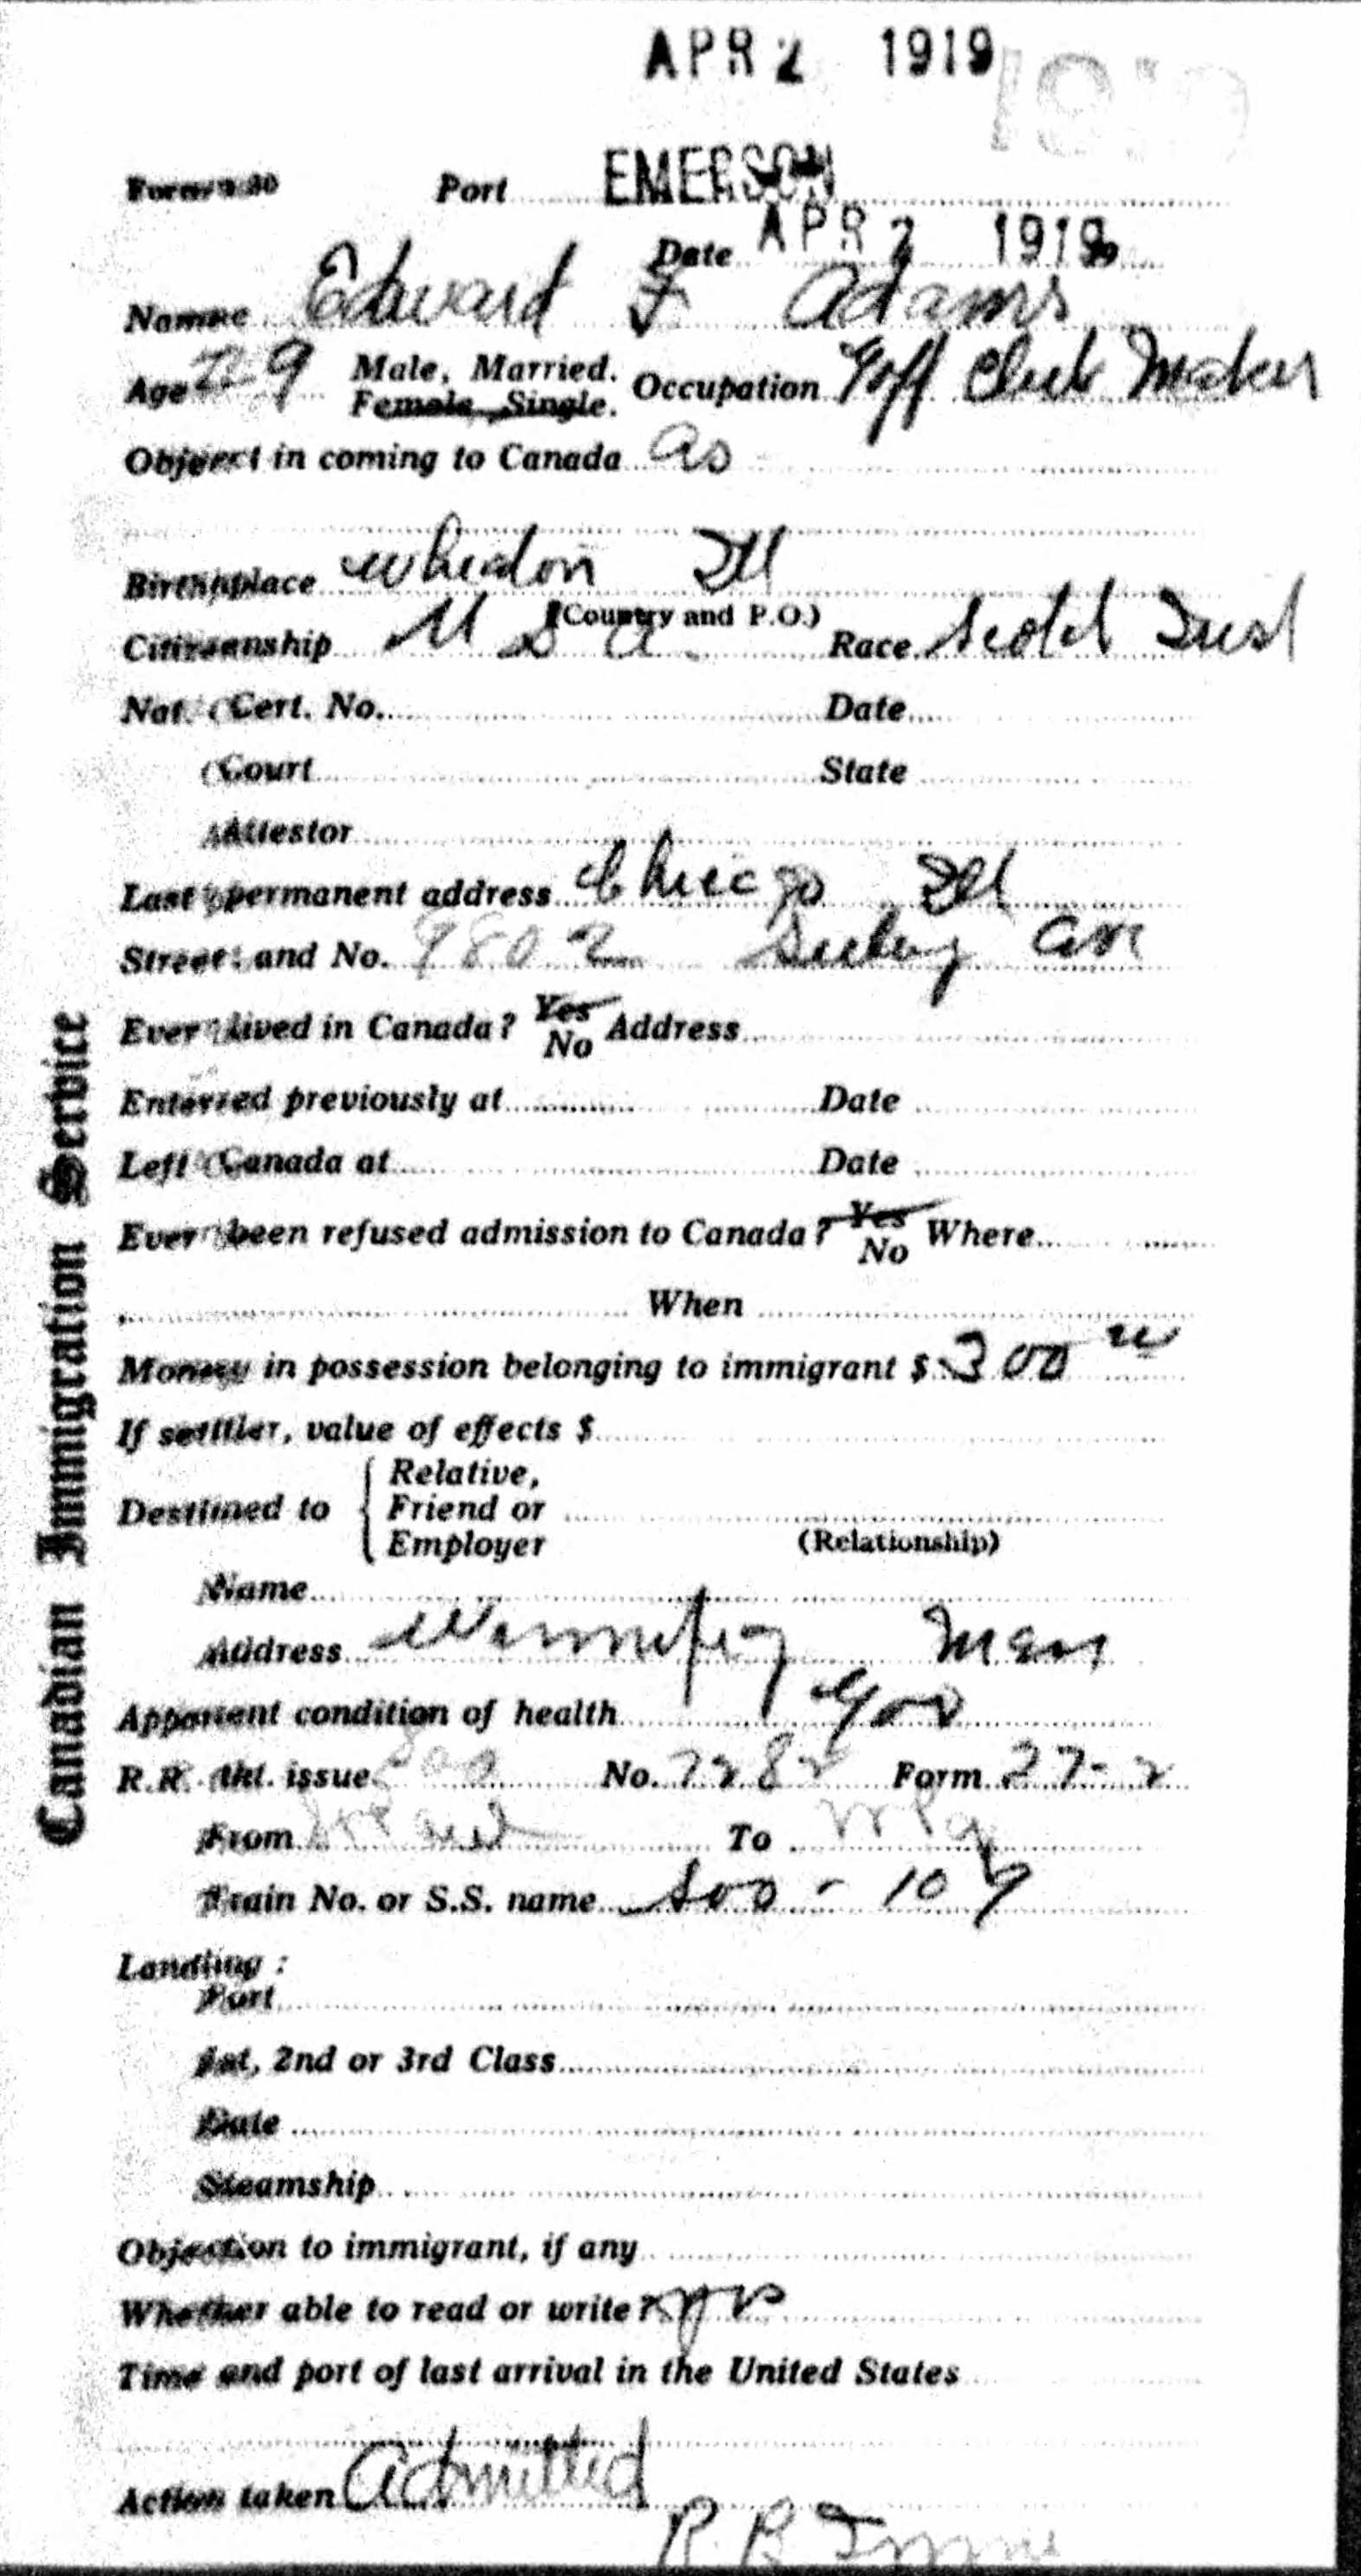 APR 2 1919
Form 30 Port EMERSON
Date APR 2 1919
Name Edward F Adams
Age 29 Male, Married. Female, Single. Occupation Goff Club Maker
Object in coming to Canada as
Birthplace Wheaton Ill
(Country and P.O.)
Citizenship U S a. Race Scotch Irish
Nat. Cert. No. Date
Court State
Attestor
Last permanent address Chicago Ill
Street and No. 9802 Seeley ave
Ever lived in Canada? Yes No Address
Entered previously at Date
Left Canada at Date
Ever been refused admission to Canada? Yes No Where
When
Money in possession belonging to immigrant $ 300
If settler, value of effects $
Destined to { Relative, Friend or Employer
(Relationship)
Name
Address Winnipeg Man
Apparent condition of health good
R.R. tkt. issue Soo No. 7282 Form 27-2
From St Paul To Wpg
Train No. or S.S. name Soo - 109
Landing :
Port
1st, 2nd or 3rd Class
Date
Steamship
Objection to immigrant, if any
Whether able to read or write? yes
Time and port of last arrival in the United States
Action taken Admitted
R B
Canadian Immigration Service